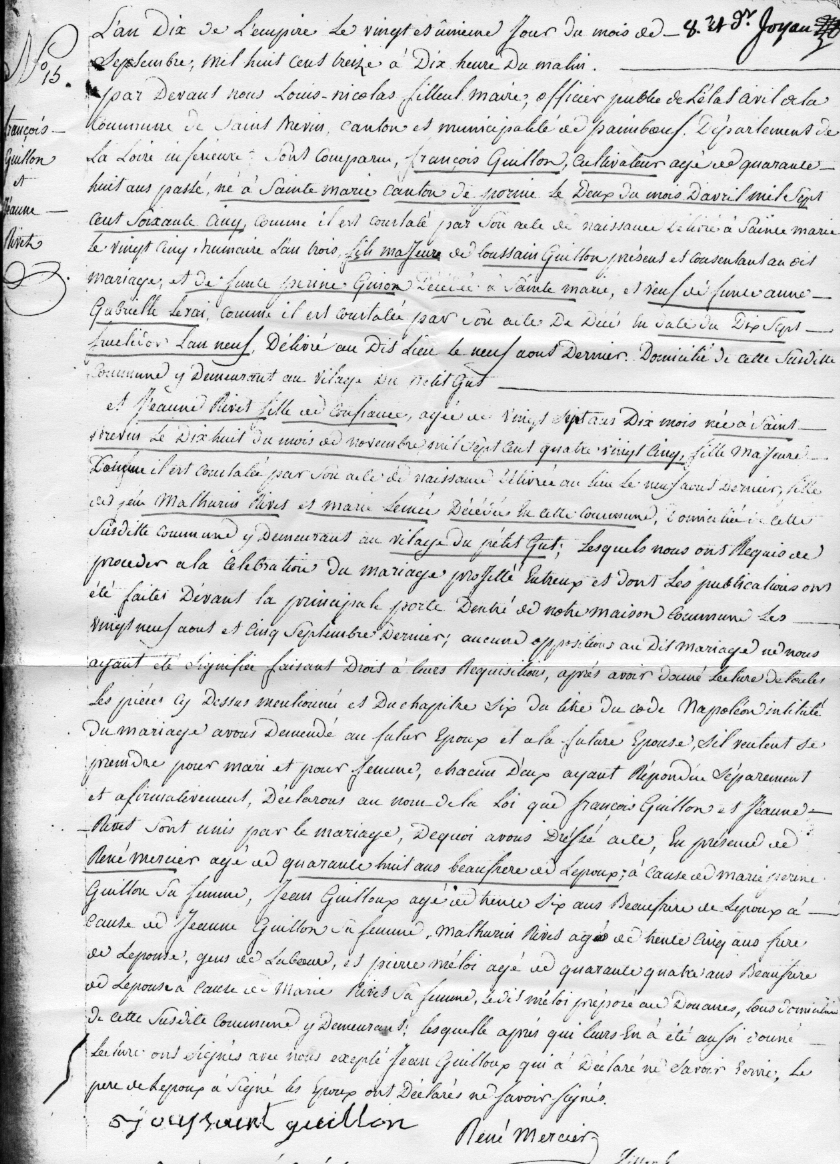 L'an Dix de L'empire Le vingt et unieme Jour du mois de
Septembre, mil huit cent treize à Dix heure Du matin.
No 15.
par Devant nous Louis-nicolas filleul maire, officier public de L'état Civil de la
Commune de Saint Brevin, canton et municipalité de paimboeuf, Département de
La Loire inferieure; Sont Comparu, françois Guillon, Cultivateur agé de quarante
huit ans passé, né à Sainte marie canton de pornic le Deux du mois D'avril mil Sept
Cent Soixante Cinq, comme il est constaté par Son acte de naissance Délivré à Sainte marie
le vingt Cinq Brumaire L'an trois, fils majeure de toussaint Guillon présent et Consentant au dit
mariage, et de funte perrine Décédée à Sainte marie, et veuf de funte anne
Gabrielle Lerai, comme il est constatée par Son acte De Décé En date du Dix Sept
fructidor L'an neuf, Délivré au Dit Lieu le neuf aout Dernier. Domicilié de cette Susditte
Commune y Demeurant au vilage Du petit Gut
françois
Guillon
et
Jeanne
Rivet
et Jeanne Rivet fille de Confiance, agée de vingt Sept ans Dix mois née à Saint
Brevin le Dix huit du mois de novembre mil Sept Cent quatre vingt Cinq, fille majeure
Comme il est constatée par Son acte de naissance Délivrée au lieu le neuf aout Dernier, fille
de feu Mathurin Rivet et marie Lemée Décédés En cette Commune, Domiciliée de cette
Susditte commune y Demeurant au vilage du petit Gut; Lesquels nous ont Requis de
proceder a la Celebration du mariage projetté Entreux et dont Les publications ont
été faites Dévant la principale porte D'entré de notre maison Commune Les
vingt neuf aout et Cinq Septembre Dernier; aucune oppositions au Dit mariage ne nous
ayant été Signifié faisant Droit à leurs Requisition, aprés avoir donné Lecture de toutes
Les piéces Cy Dessus mentionné et Du chapitre Six du titre du code Napoléon intitulé
Du mariage avons Demendé au futur Epoux et a la future Epouse, S'il veulent se
prendre pour mari et pour femme, chacun D'eux ayant Répondu Séparement
et afirmativement, Déclarons au nom de la Loi que françois Guillon et Jeanne
Rivet Sont unis par le mariage, Dequoi avons Dréssé acte, En présence de
René mercier agé de quarante huit ans beaufrere de L'epoux, à cause de marie perrine
Guillon Sa femme, Jean Guilloux agé de trente Six ans Beaufrére de L'epoux à
Cause de Jeanne Guillon Sa femme, Mathurin Rivet agé de trente Cinq ans frere
de L'epouse, gens de Labeur, et pierre méloi agé de quarante quatre ans Beaufrere
de L'epouse a Cause de Marie Rivet Sa femme, Ledit méloi préposé au Douanes, tous domicilié
de cette Susditte Commune y Demeurant, lesquelle aprés qui leurs En à été aussi donné
Lecture ont Signés avec nous exepté Jean Guilloux qui à Déclaré né Savoir Ecrire, Le
pere de L'epoux à Signé les Epoux ont Déclarés né Savoir Signés.
toussaint guillon
René Mercier